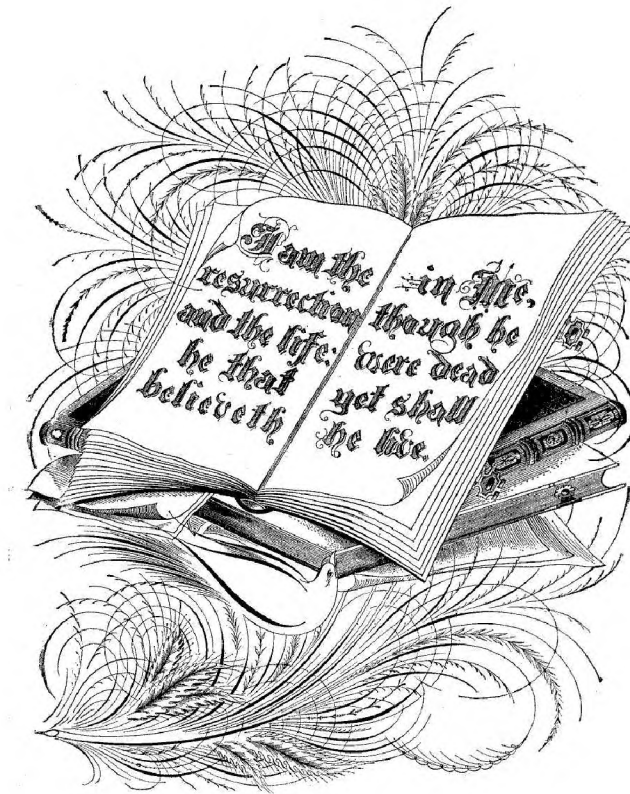 I am the
resurrection
and the life:
he that
believeth
in Me,
though he
were dead
yet shall
he live.